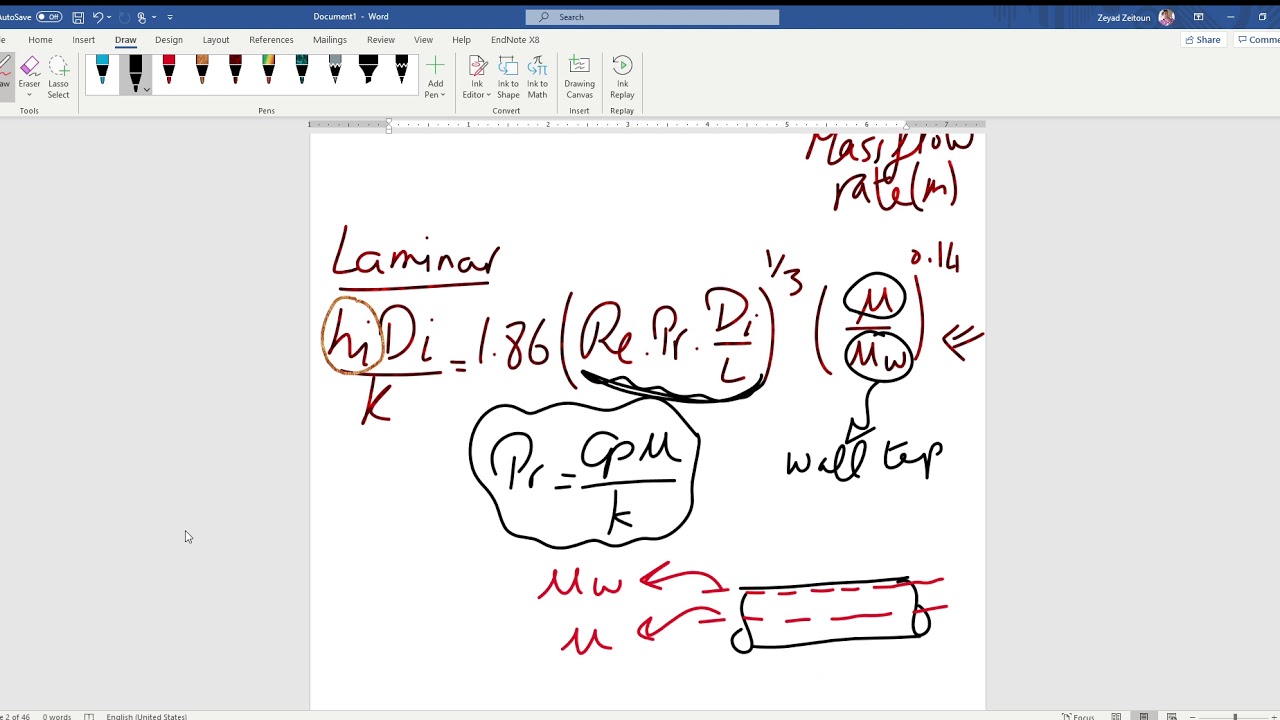 AutoSave Off
Document1 - Word
Search
Zeyad Zeitoun
Home Insert Draw Design Layout References Mailings Review View Help EndNote X8
Share
Eraser
Lasso Select
Add Pen
Ink Editor
Ink to Shape
Ink to Math
Drawing Canvas
Ink Replay
Tools
Pens
Convert
Insert
Replay
1 1 2 3 4 5 6 7
Mass flow
rate (m)
Laminar
hiDi/k = 1.86 (Re.Pr.Di/L)^1/3 (μ/μw)^0.14
Pr = Cpμ/k
wall temp
μw
μ
2 of 46 0 words English (United States)
Focus